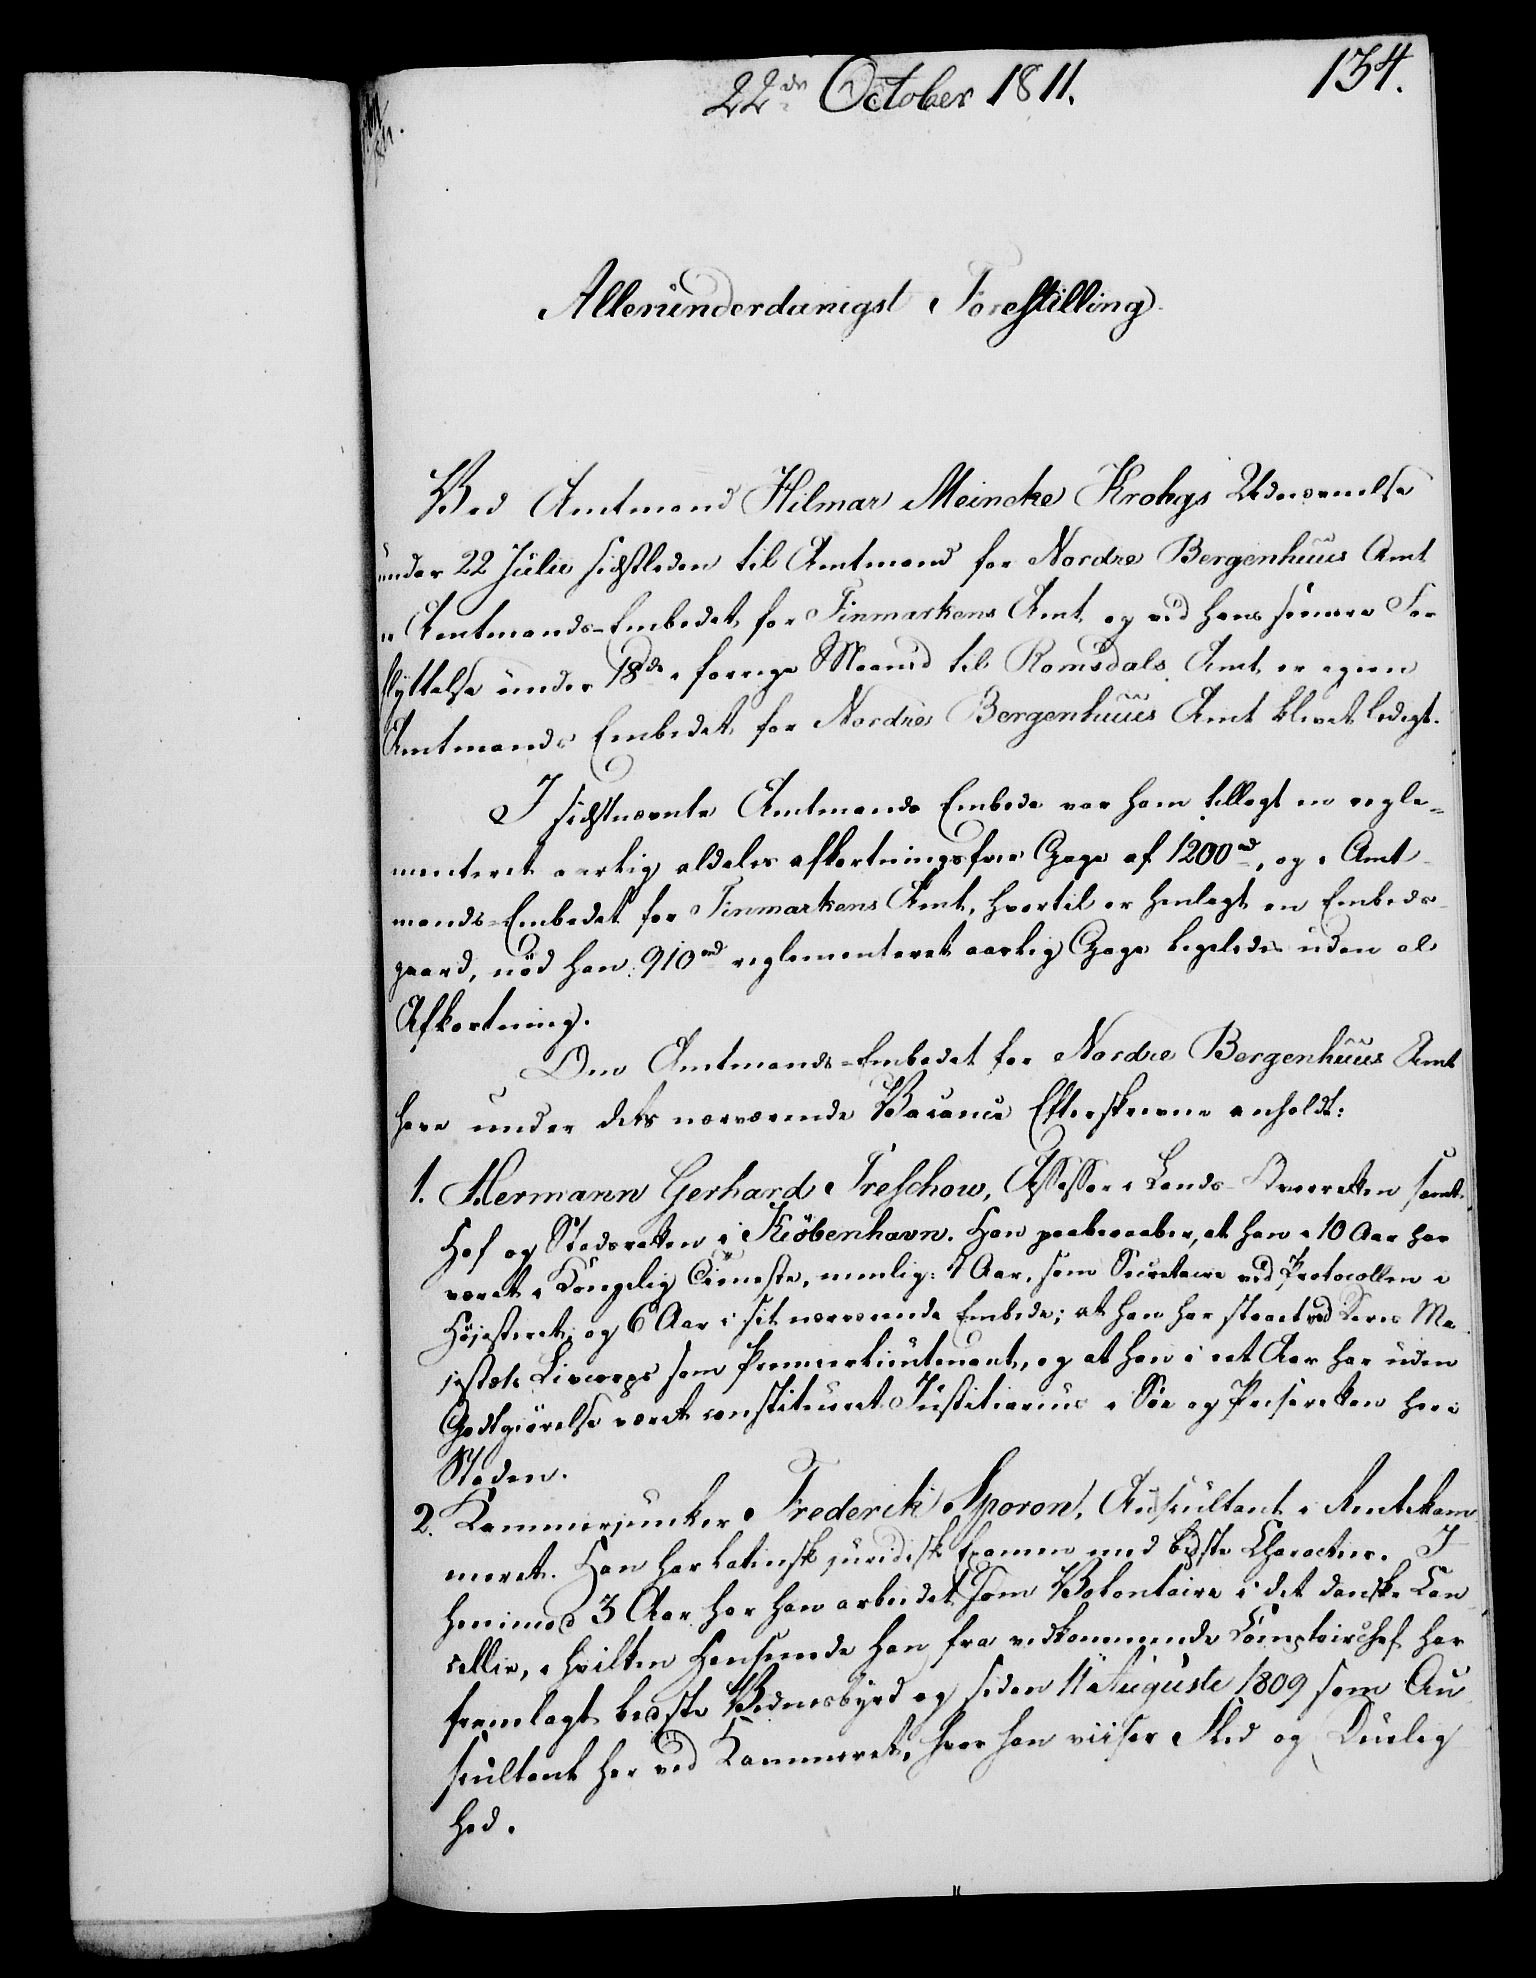 22de October 1811.
134.
Allerunderdanigst Forestilling
Ved Amtmand Hilmar Meincke Krohgs Udnævnelse
under 22 Julii sidstleden til Amtmand for Nordre Bergenhuus Amt
er Amtmands-Embedet for Finmarkens Amt og ved hans senere For
flyttelse under 18de i forrige Maaned til Romsdals Amt er igien
Amtmands Embedet for Nordre Bergenhuus Amt blevet ledigt.
I sidstnævnte Amtmands Embede var ham tillagt en regle-
menteret aarlig aldeles afkortningsfrie Gage af 1200 rd, og i Amt
mands-Embedet for Finmarkens Amt, hvortil er henlagt en Embeds-
gaard, nød han 910 rd reglementeret aarlig Gage ligeledes uden al
Afkortning.
Om Amtmands-Embedet for Nordre Bergenhuus Amt
have under dets nærværende Vacance Efterskrevne anholdt:
1. Hermann Gerhard Treschow, Assessor i Lands-Overretten samt
Hof og Stadsretten i Kiöbenhavn. Han paaberaaber, at han i 10 Aar har
været i Kongelig Tieneste, nemlig: 4 Aar, som Secretaire ved Protocollen i
Høiesteret, og 6 Aar i sit nærværende Embede; at han har staaet ved Deres Ma
jestæts Livcorps som Premierlieutenant, og at han i eet Aar har uden
Godtgiørelse været constitueret Justitiarius i Søe og Priseretten her i
Staden.
2. Kammerjunker Frederik Sporon, Auscultant i Rentekam
meret. Han har latinsk juridisk Examen med bedste Character. I
henimod 3 Aar har han arbeidet som Volontaire i det danske Can
cellie, i hvilken Henseende han fra vedkommende Comptoirchef har
fremlagt bedste Vidnesbyrd og siden 11 Augusti 1809 som Au
scultant her ved Kammeret, hvor han viiser Flid og Duelig
hed.